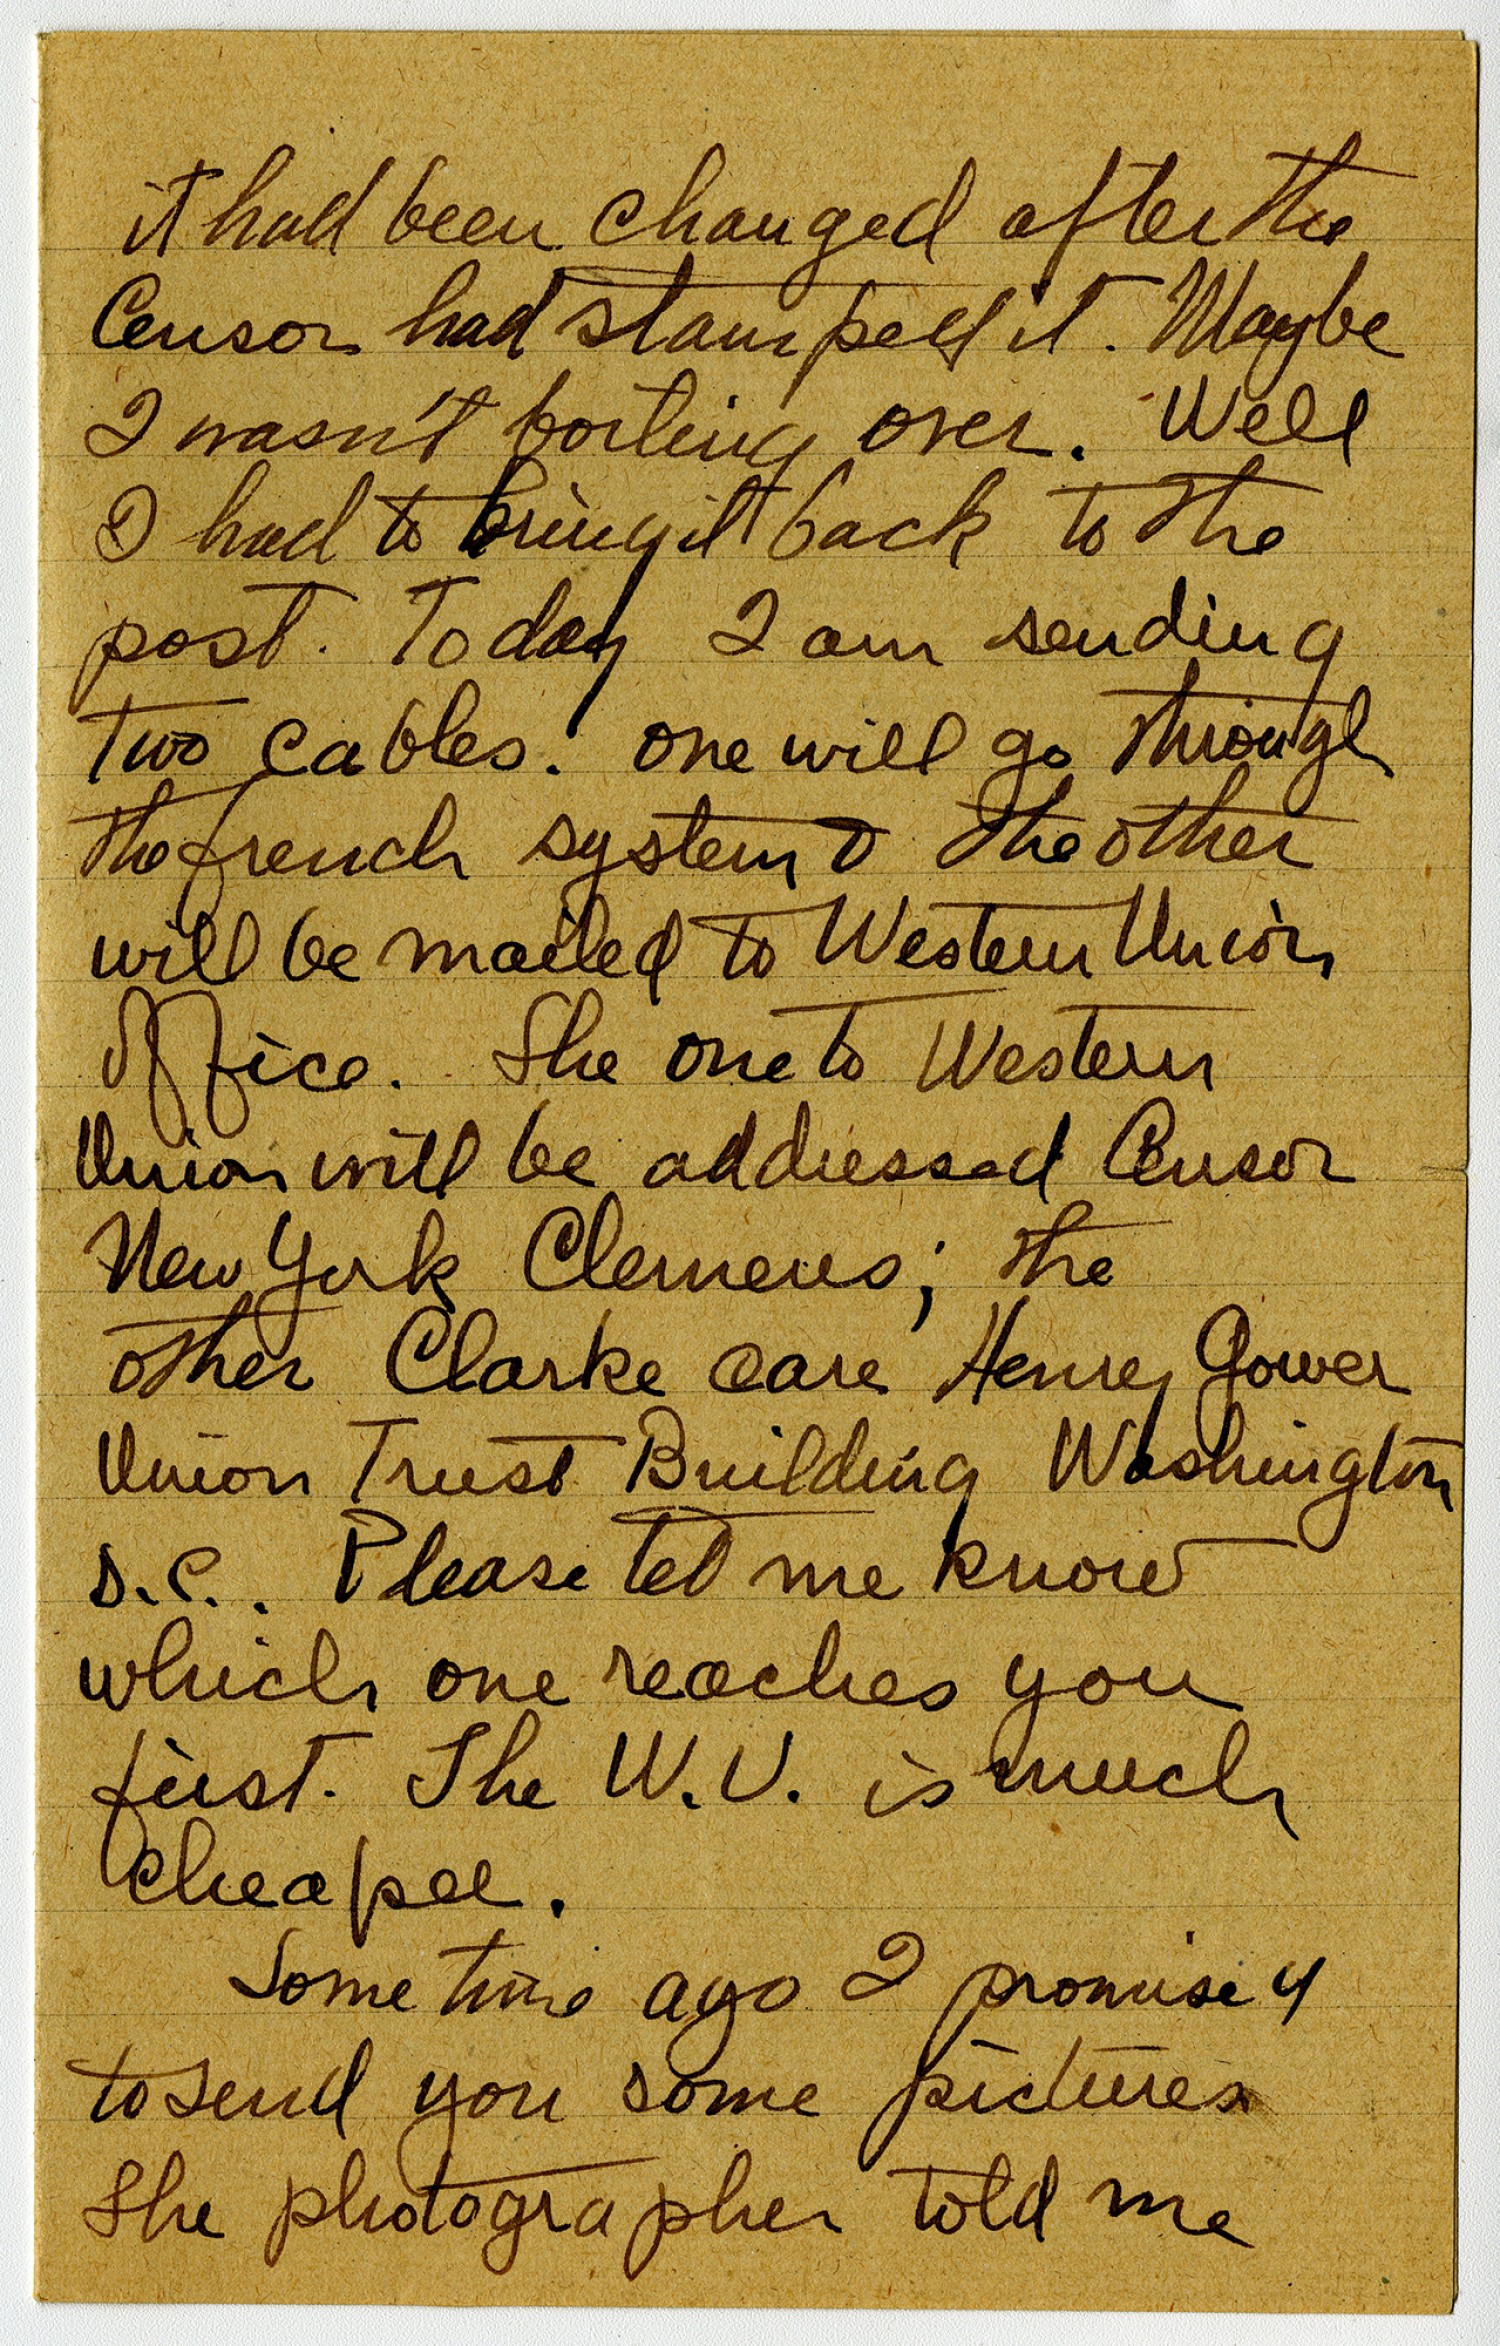 it had been changed after the
Censor had stamped it. Maybe
I wasn't boiling over. Well
I had to bring it back to the
post. Today I am sending
two cables. One will go through
the french system & the other
will be mailed to Western Union
Office. The one to Western
Union will be addressed Censor
New York Clemens; the
other Clarke care Henry Gower
Union Trust Building Washington
D.C.. Please tell me know
which one reaches you
first. The W.U. is much
cheaper.
Some time ago I promised
to send you some pictures
The photographer told me